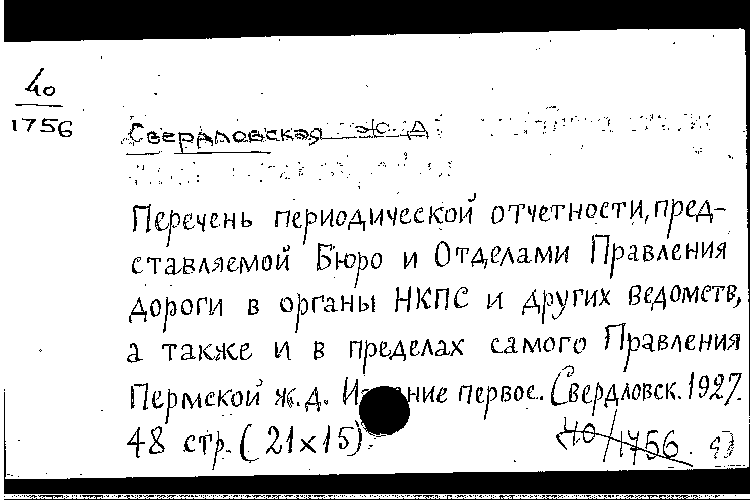 40
1756
Свердловская ж.д.
Перечень периодической отчетности, пред-
ставляемой Бюро и Отделами Правления
дороги в органы НКПС и других ведомств,
а также и в пределах самого Правления
Пермской ж.д. Издание первое. Свердловск. 1927.
48 стр. (21×15).
40/1756.